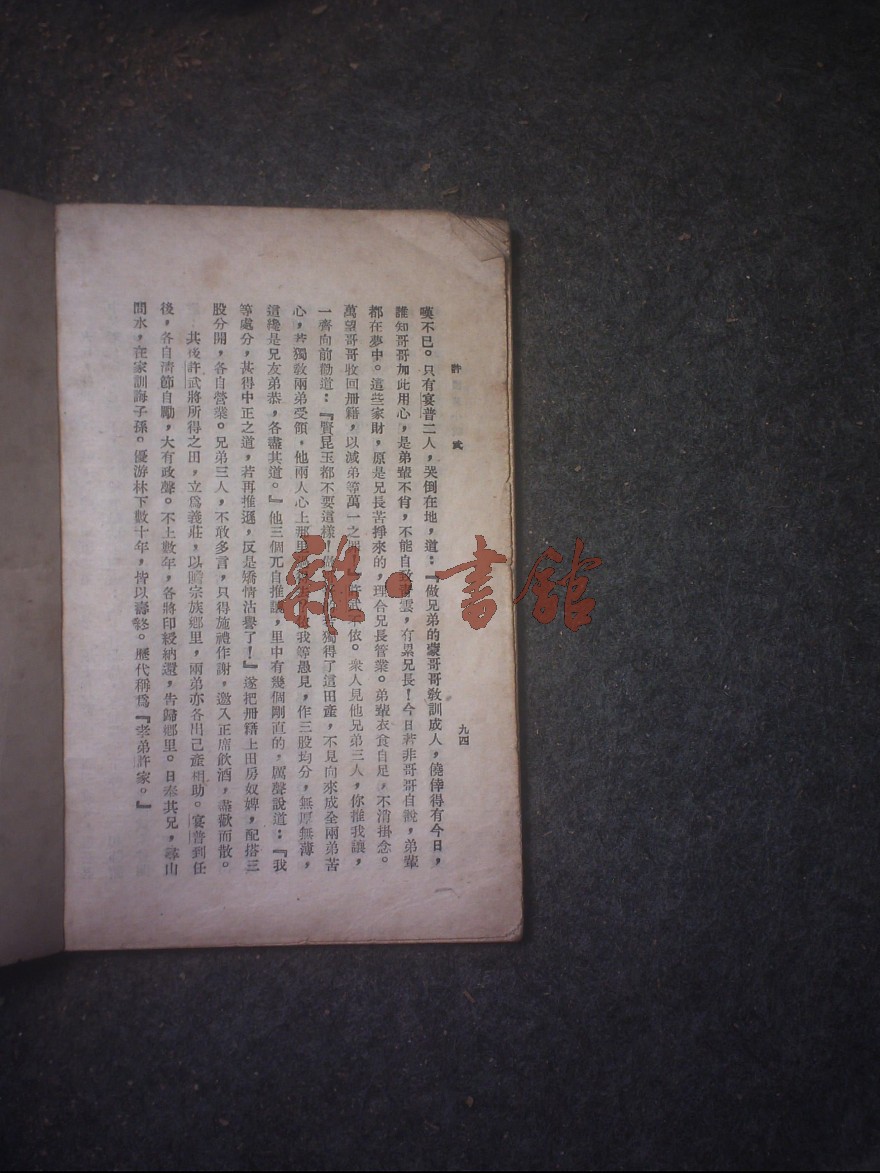 許武
九四
嘆不已。只有宴普二人，哭倒在地，道：『做兄弟的蒙哥哥教訓成人，僥倖得有今日，
誰知哥哥加此用心，是弟輩不肖，不能自致雲，有累兄長！今日若非哥哥自說，弟輩
都在夢中。這些家財，原是兄長苦掙來的，理合兄長管業。弟輩衣食自足，不消掛念。
萬望哥哥收回册籍，以減弟等萬一之武依。衆人見他兄弟三人，你推我讓，
一齊向前勸道：『賢昆玉都不要這樣！獨得了這田產，不見向來成全兩弟苦
心，若獨教兩弟受領，他兩人心上那里我等愚見，作三股均分，無厚無薄，
這纔是兄友弟恭，各盡其道。』他三個兀自推讓，里中有幾個剛直的，厲聲說道：『我
等處分，甚得中正之道，若再推遜，反是矯情沽譽了！』遂把册籍上田房奴婢，配搭三
股分開，各自營業。兄弟三人，不敢多言，只得施禮作謝，邀入正席飲酒，盡歡而散。
其後許武將所得之田，立爲義莊，以贍宗族鄉里，兩弟亦各出己產相助。宴普到任
後，各自清節自勵，大有政聲。不上數年，各將印綬納還，告歸鄉里。日奉其兄，尋山
問水，在家訓誨子孫。優游林下數十年，皆以壽終。歷代稱爲『孝弟許家。』
雜·書館